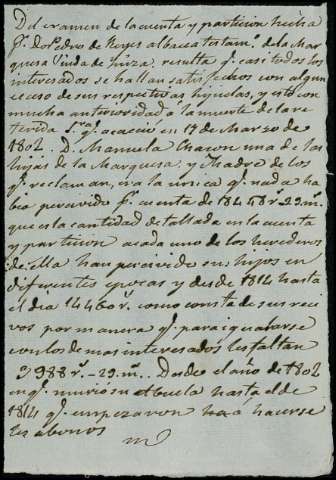 Del examen de la cuenta y particion hecha
pr. Dn. Pedro de Reyes albacea testamo. de la Mar
quesa Viuda de resulta qe. casi todos los
interesados se hallan satisfechos con algun
eceso de sus respectivas hijuelas, y esto con
mucha anterioridad a la muerte de la re
ferida Sra. qe. acaecio en 17 de Marzo de
1802. Da. Manuela Chacon una de las
hijas de la Marquesa, y Madre de los
qe. reclaman, era la unica qe. nada ha
bia percivido pr. cuenta de 18448 rs. 29 ms.
que es la cantidad detallada en la cuenta
y particion a cada uno de los herederos
de ella han percivido sus hijos en
diferentes epocas y desde 1814 hasta
el dia 14460 rs. como consta de sus reci
vos por manera qe. para igualarse
con los demas interesados les faltan
3988 rs. - 29 ms. Desde el año de 1802
en qe. murió su abuela hasta el de
1814 qe. empezaron a hacerse
les abonos